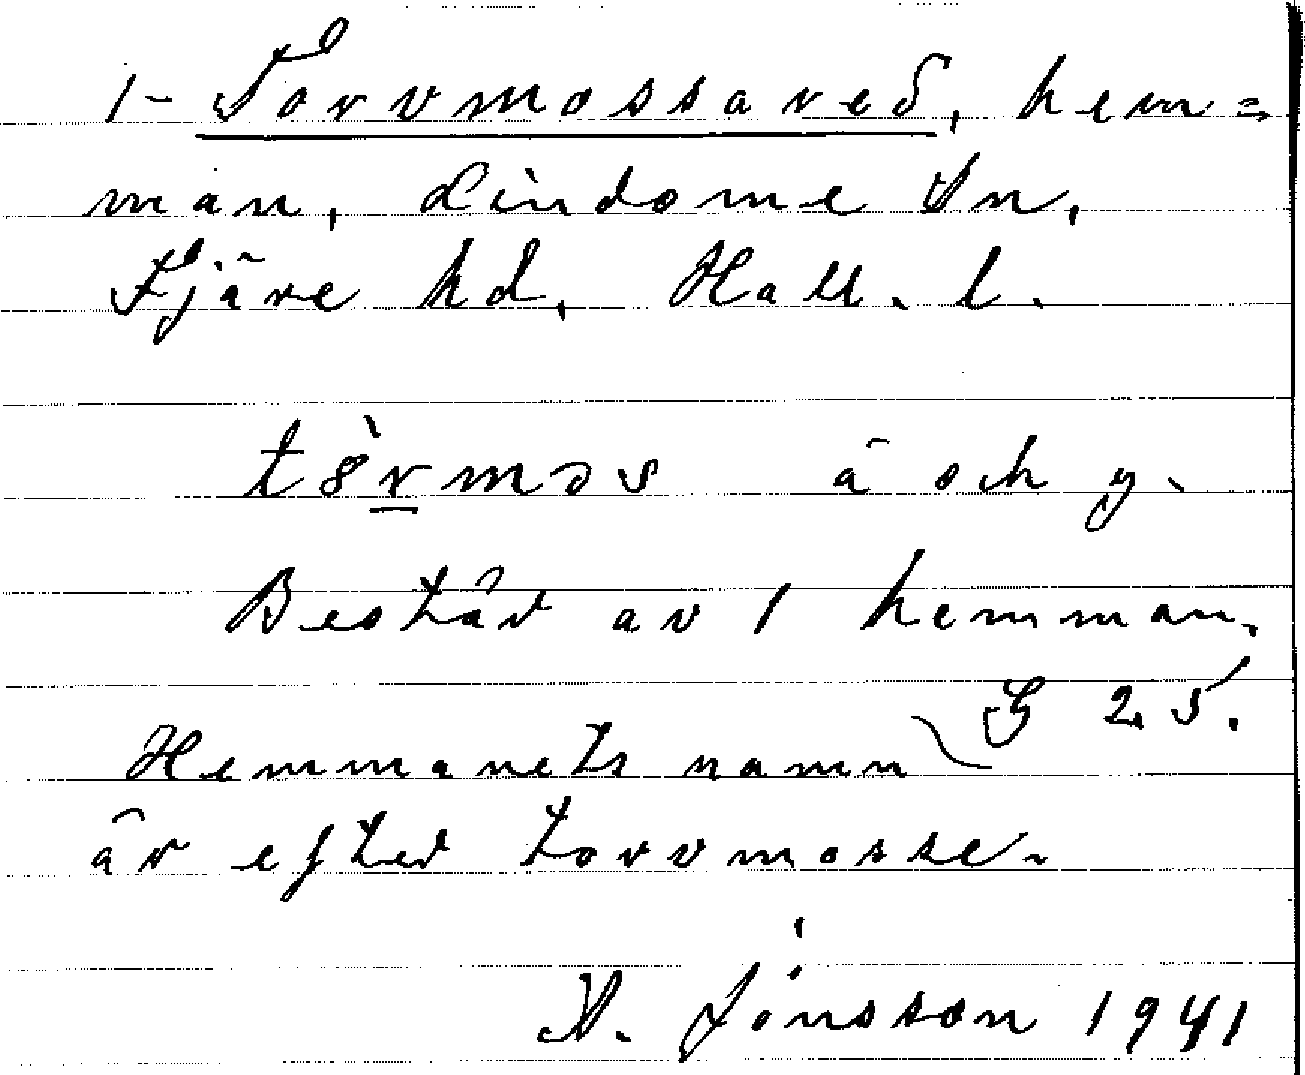 1- Torvmossared, hem=
man, Lindome Sn,
Fjäre hd, Hall. l.
tòrmos ä och y.
Består av 1 hemman.
G 25.
Hemmanets namn
är efter torvmosse.
V. Jönsson 1941